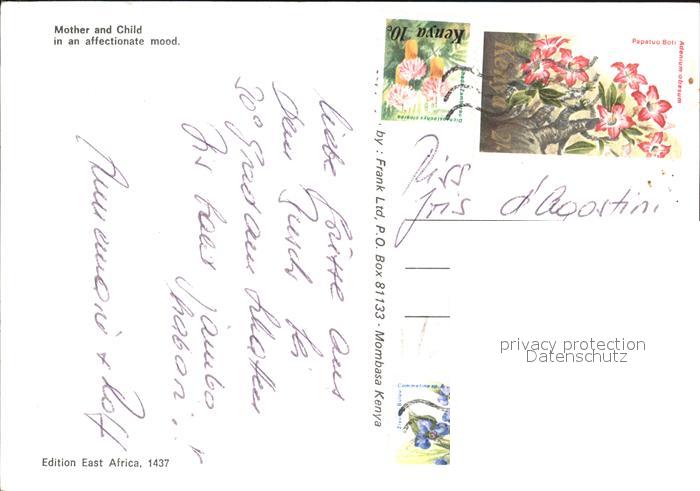 Mother and Child
in an affectionate mood.
Kenya 10c
Dichrostachys cinerea
Kenya
Papatuo Boti
Adenium obesum
by : Frank Ltd, P.O. Box 81133 - Mombasa Kenya
Miss
Iris d'Agostini
liebe Grüsse aus
dem Busch bei
30° Grad am Schatten
Bis bald Jambo
Annemarie + Rolf
privacy protection
Datenschutz
Edition East Africa, 1437